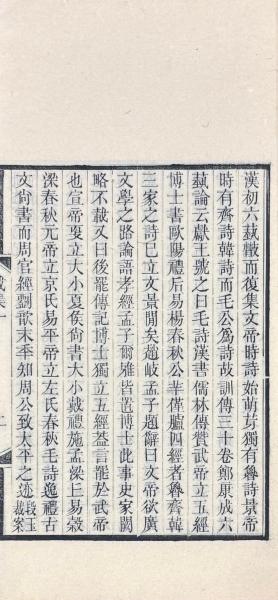 漢初六蓺㦿而復集文帝時詩始萌芽獨有魯詩景帝
時有齊詩韓詩而毛公爲詩故訓傳三十卷鄭康成六
蓺論云獻王號之曰毛詩漢書儒林傳贊武帝立五經
博士書歐陽禮后易楊春秋公羊僅臚四經者魯齊韓
三家之詩已立文景閒矣趙岐孟子題辭曰文帝欲廣
文學之路論語孝經孟子爾雅皆置博士此事史家闕
略不載又曰後罷傳記博士獨立五經葢言罷於武帝
也宣帝更立大小夏侯尙書大小戴禮施孟梁上易穀
梁春秋元帝立京氏易平帝立左氏春秋毛詩逸禮古
文尙書而周官經劉歆末年知周公致太平之迹段玉
裁案